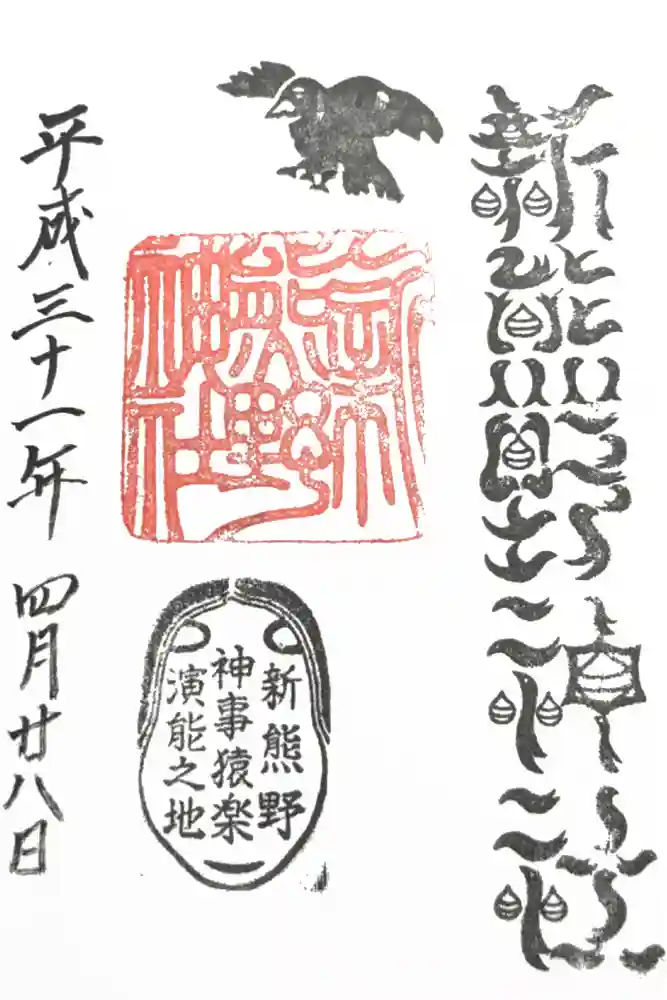 新熊野神社
新熊野神社
新熊野
神事猿楽
演能之地
平成三十一年 四月廿八日